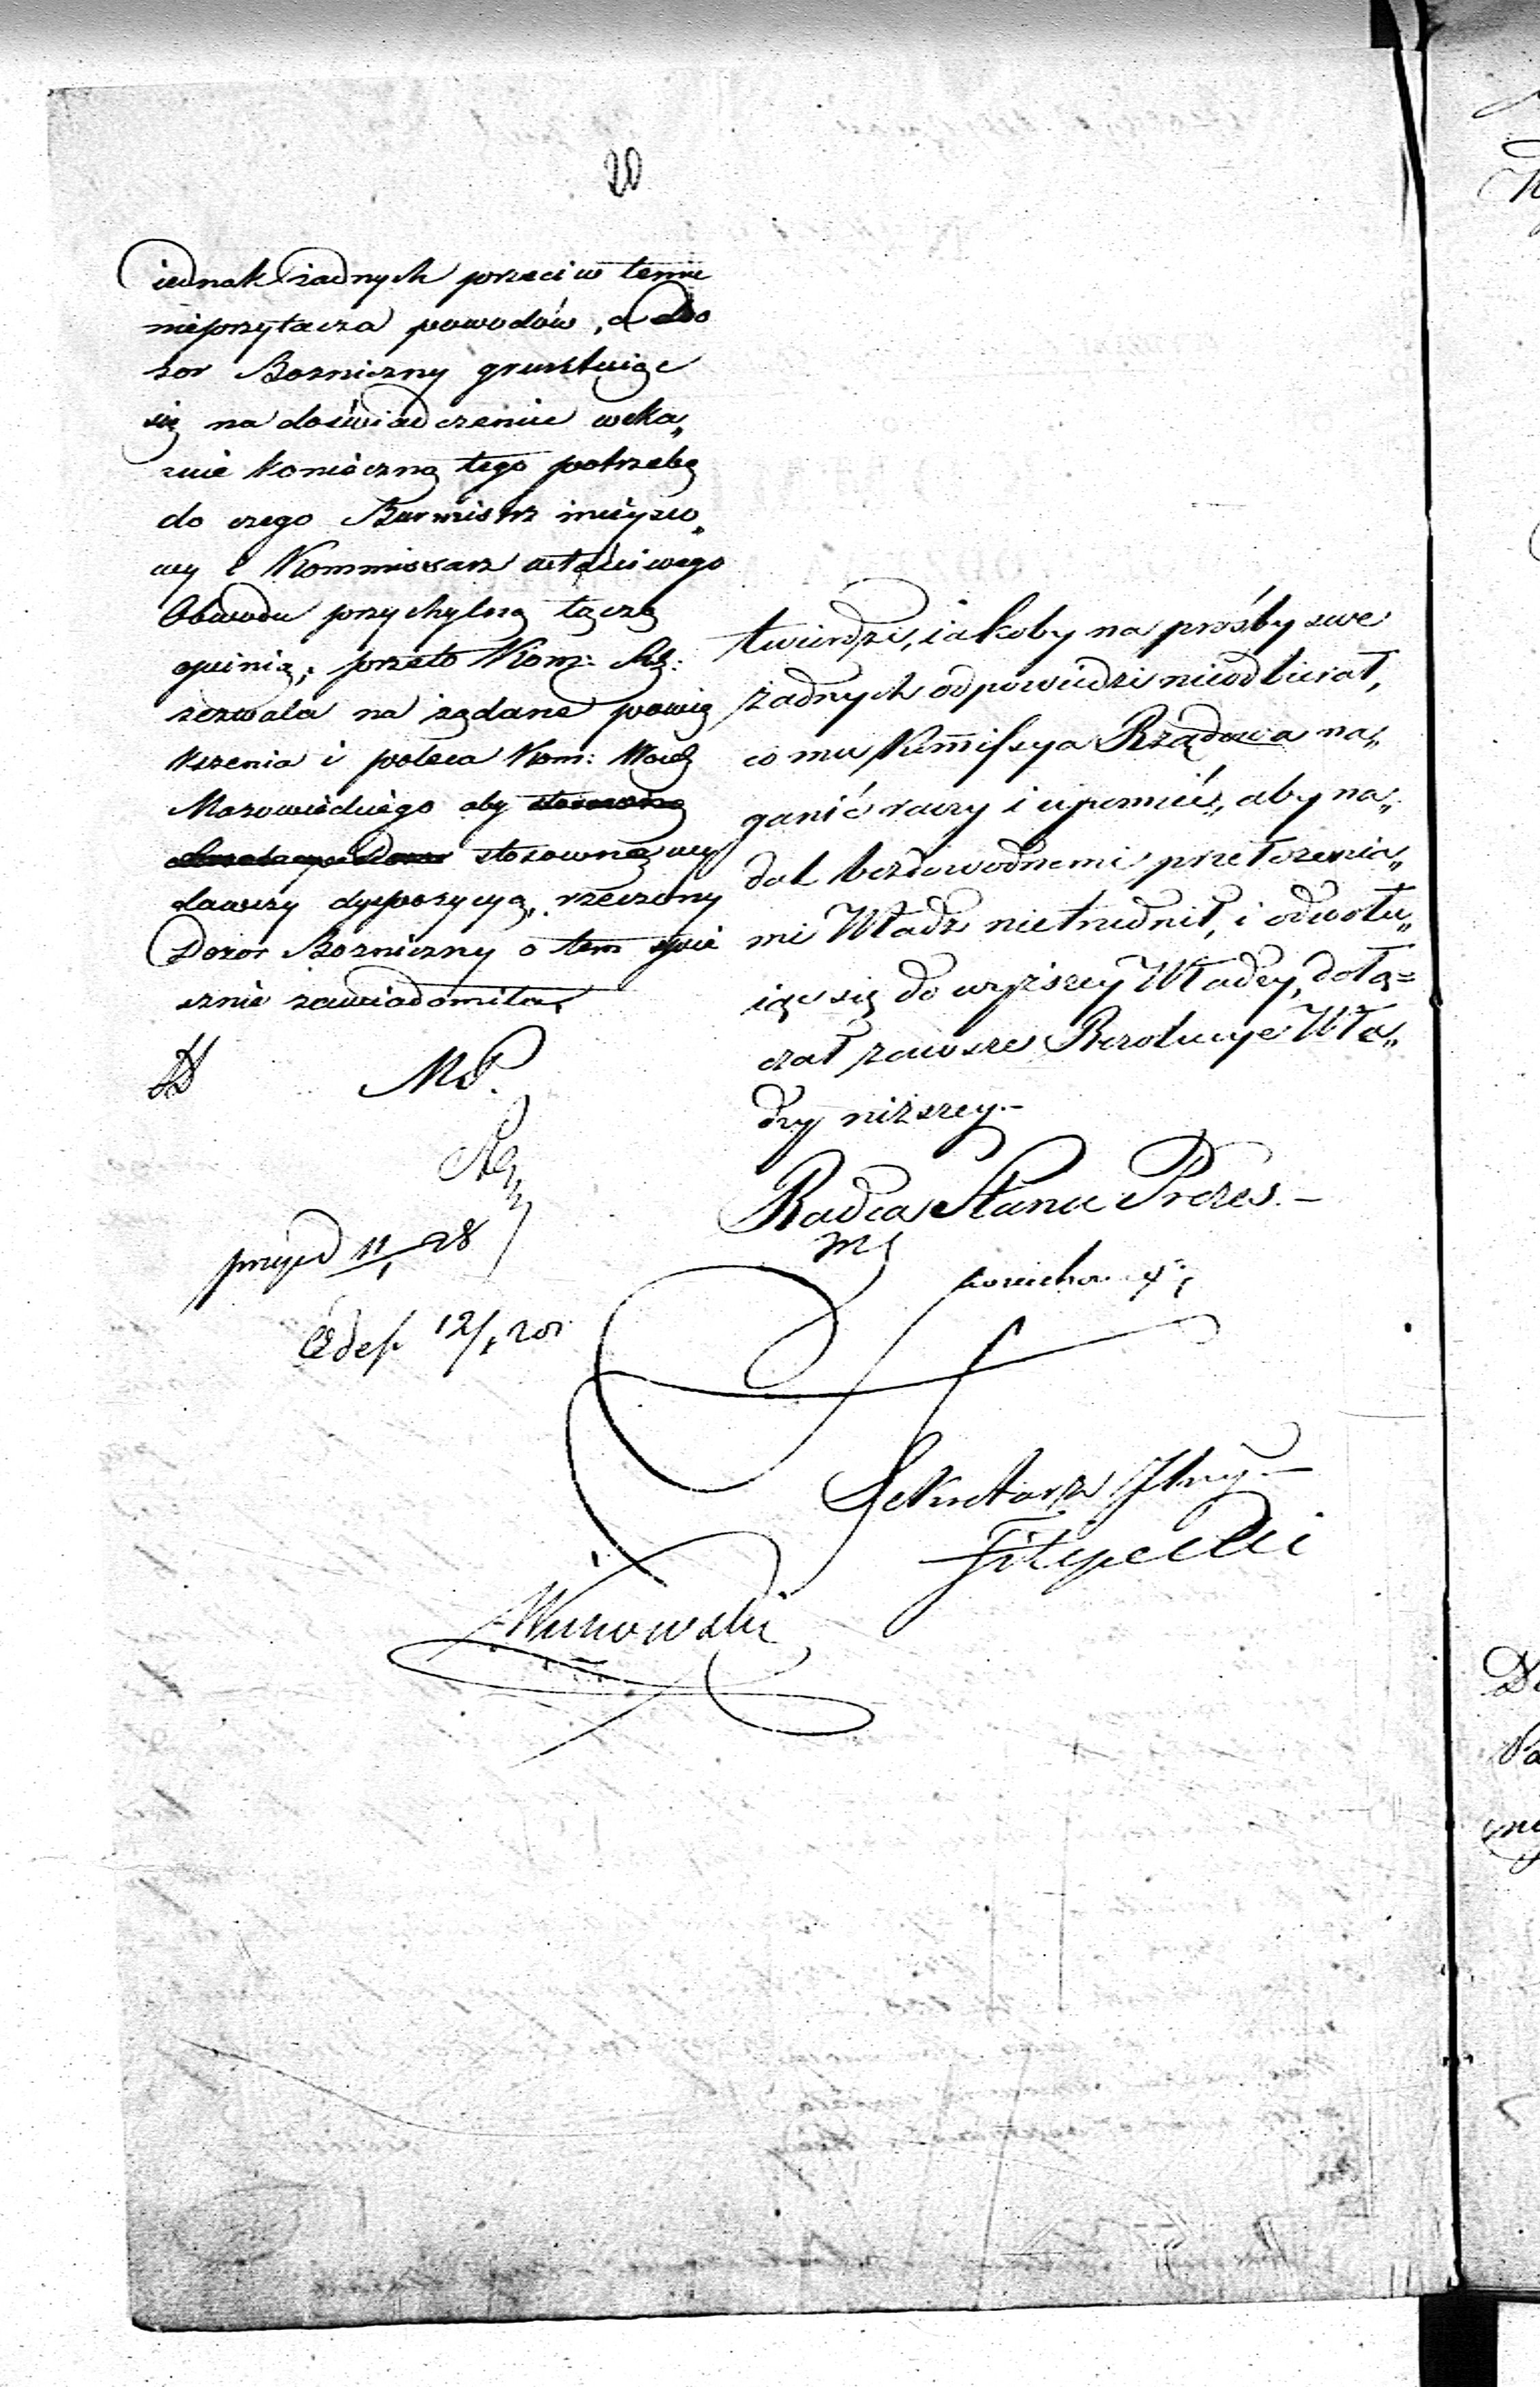 20
iednak żadnych przeciw temu
nieprzytacza powodów, a do
zor Bozniczny gruntuiąc
się na doświadczenie weka„
zuie konieczną tego potrzebę
do czego Burmistrz mieysco„
wy i Kommissarz właściwego
Obwodu przychylną łączą
opinią; przeto Kom: Rz:
zezwala na żądane powię
kszenia i poleca Kom: Woiew
Mazowieckiego aby
stosowną wy
dawszy dyspozycyą, rzeczony
Dozor Bozniczny o tem
cznie zawiadomiła,
MP.
11/1 28
12/1
twierdzi, iakoby na prośby swe
żadnych odpowiedzi nieodbierał,
co mu Kommissya Rządowa na„
ganić raczy i upomnić, aby na„
dal bezdowodnemi przełożenia„
mi Władz nietrudnił, i odwołu„
iąc się do wyższey Władzy, dołą=
czał zawsze Rezolucye Wła„
dzy niższey.–
Radca Stanu Prezes.–
Sekretarz Jlny.–
Filipecki